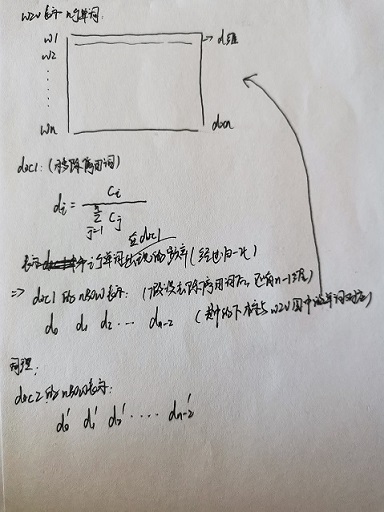 w2v 表示 n 个单词:
w1 → d维
w2
wn docn
doc1: (移除停用词)
di = Ci / Σ j=1 n Cj
在doc1
表示 i 个单词出现的频率 (经过归一化)
⇒ doc1 的 nBOW表示: (假设去除停用词后, 还有n-1维)
d0 d1 d2 ... dn-2 (其中的下标与 w2v 图中的单词对应)
同理:
doc2 的 nBOW表示:
d0' d1' d2' ..... dn-2'